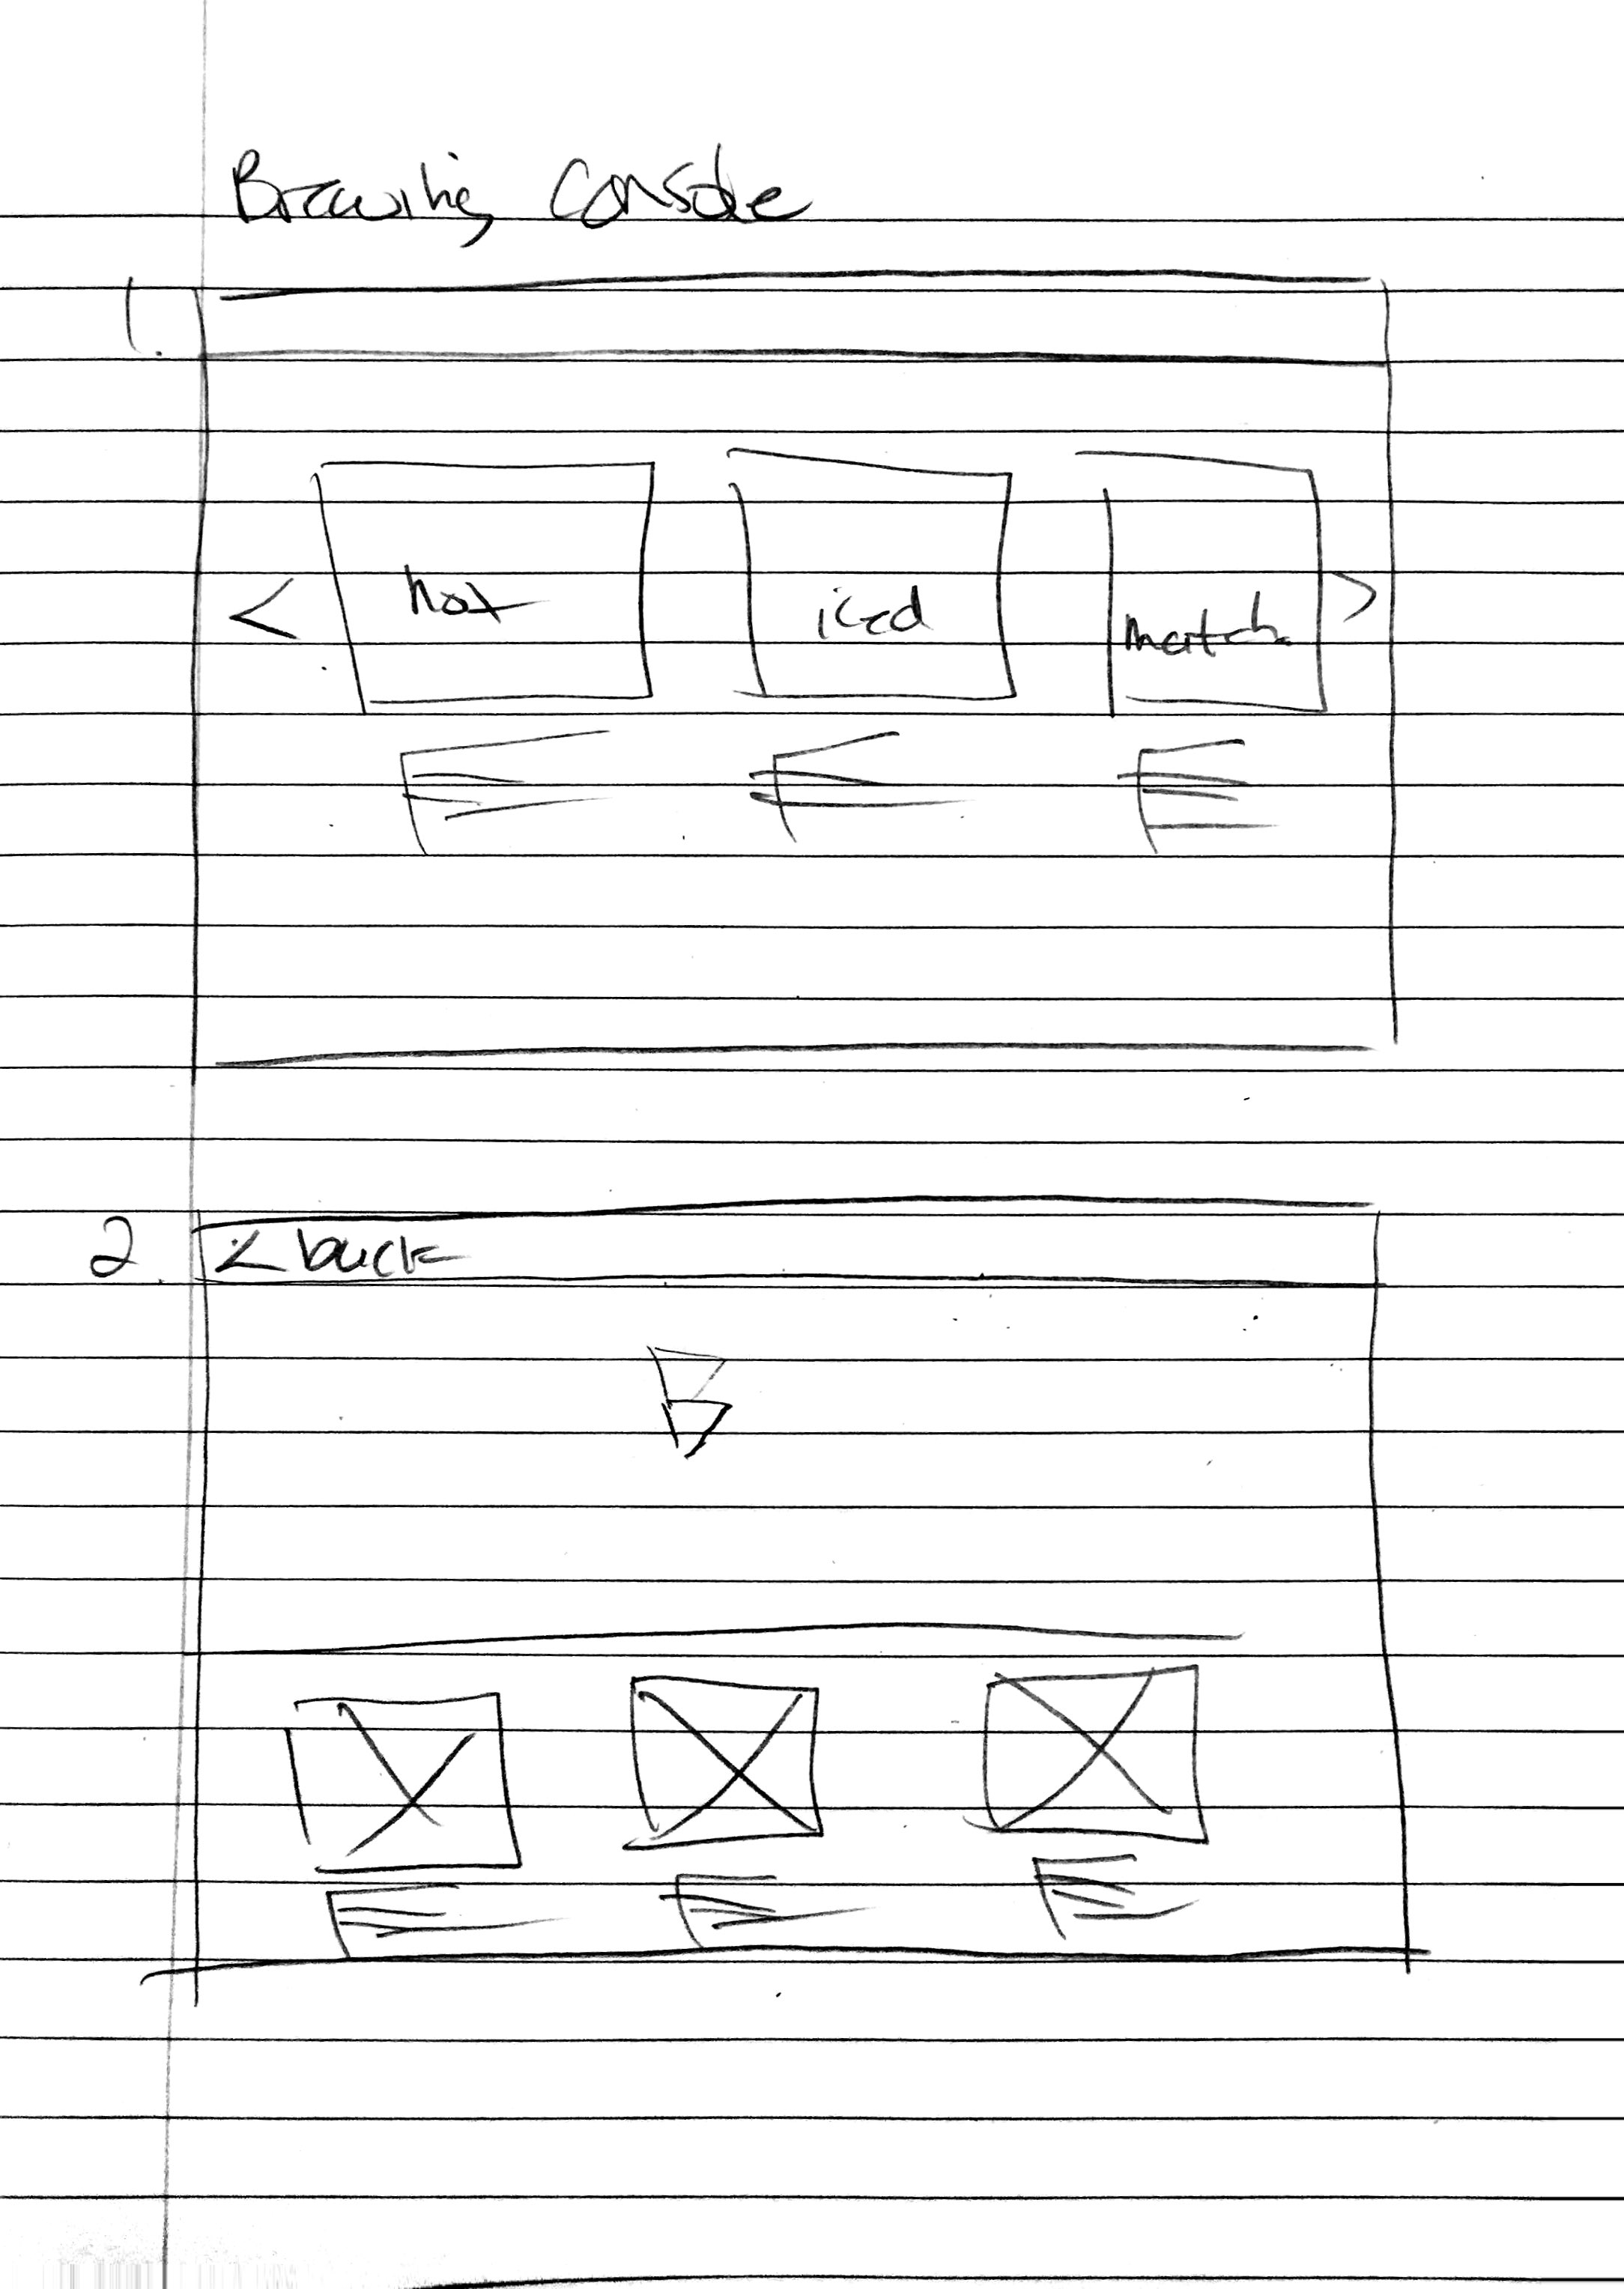 Brewing Console
1.
< hot iced match >
2. < back
B